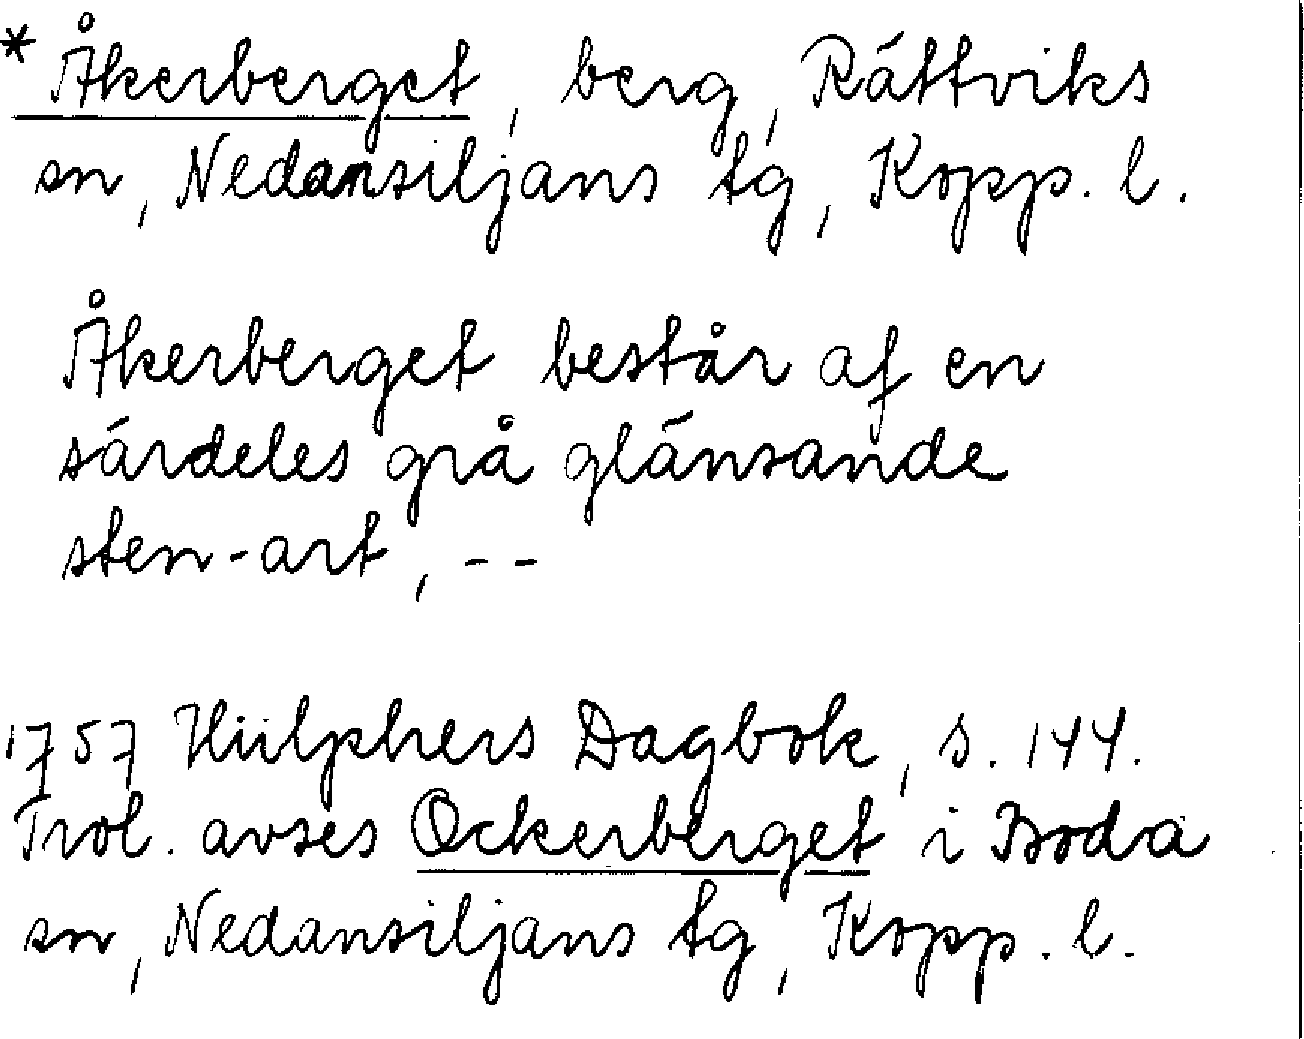 * Åkerberget, berg, Rättviks
sn, Nedansiljans tg, Kopp. l.
Åkerberget består af en
särdeles grå glänsande
sten-art, --
1757 Hülphers Dagbok, s. 144.
Trol. avses Ockerberget i Boda
sn, Nedansiljans tg, Kopp. l.